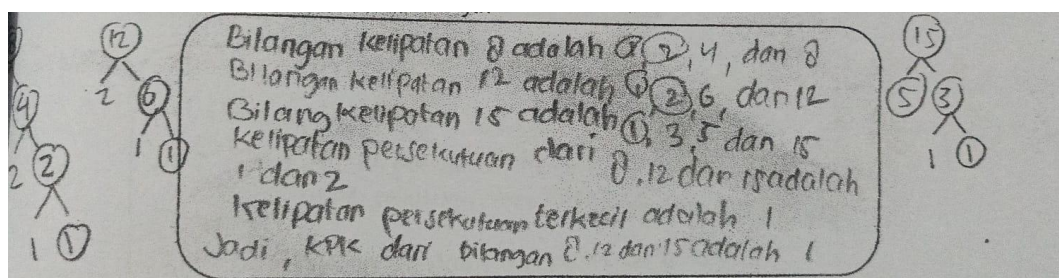 12
2 6
1 1
4
2 2
1 1
Bilangan kelipatan 8 adalah 1, 2, 4, dan 8
Bilangan kelipatan 12 adalah 1, 2, 6, dan 12
Bilang kelipatan 15 adalah 1, 3, 5 dan 15
kelipatan persekutuan dari 8, 12 dan 15 adalah
1 dan 2
kelipatan persekutuan terkecil adalah 1
Jadi, KPK dari bilangan 8. 12 dan 15 adalah 1
15
5 3
1 1